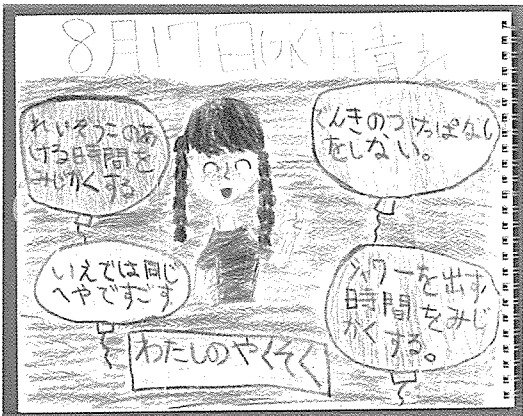 8月17日(水)晴れ
れいぞうこのあ
ける時間を
みじかくする
でんきのつけっぱなし
をしない。
いえでは同じ
へやですごす
シャワーを出す
時間をみじ
かくする。
わたしのやくそく